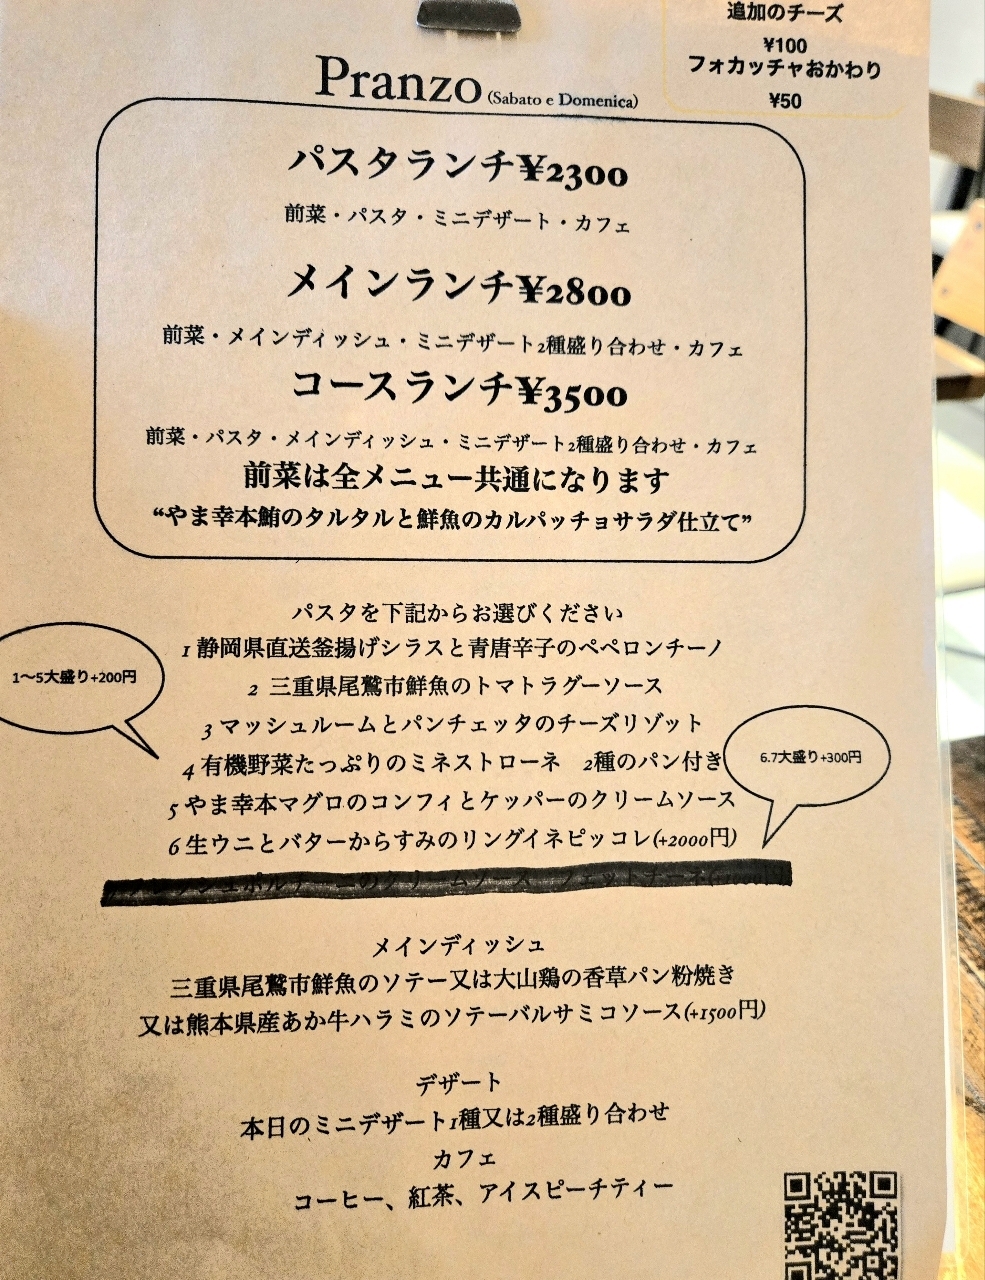 追加のチーズ
¥100
フォカッチャおかわり
¥50
Pranzo (Sabato e Domenica)
パスタランチ¥2300
前菜・パスタ・ミニデザート・カフェ
メインランチ¥2800
前菜・メインディッシュ・ミニデザート2種盛り合わせ・カフェ
コースランチ¥3500
前菜・パスタ・メインディッシュ・ミニデザート2種盛り合わせ・カフェ
前菜は全メニュー共通になります
“やま幸本鮪のタルタルと鮮魚のカルパッチョサラダ仕立て”
パスタを下記からお選びください
1 静岡県直送釜揚げシラスと青唐辛子のペペロンチーノ
1〜5大盛り+200円
2 三重県尾鷲市鮮魚のトマトラグーソース
3 マッシュルームとパンチェッタのチーズリゾット
4 有機野菜たっぷりのミネストローネ 2種のパン付き
6.7大盛り+300円
5 やま幸本マグロのコンフィとケッパーのクリームソース
6 生ウニとバターからすみのリングイネピッコレ(+2000円)
メインディッシュ
三重県尾鷲市鮮魚のソテー又は大山鶏の香草パン粉焼き
又は熊本県産あか牛ハラミのソテーバルサミコソース(+1500円)
デザート
本日のミニデザート1種又は2種盛り合わせ
カフェ
コーヒー、紅茶、アイスピーチティー